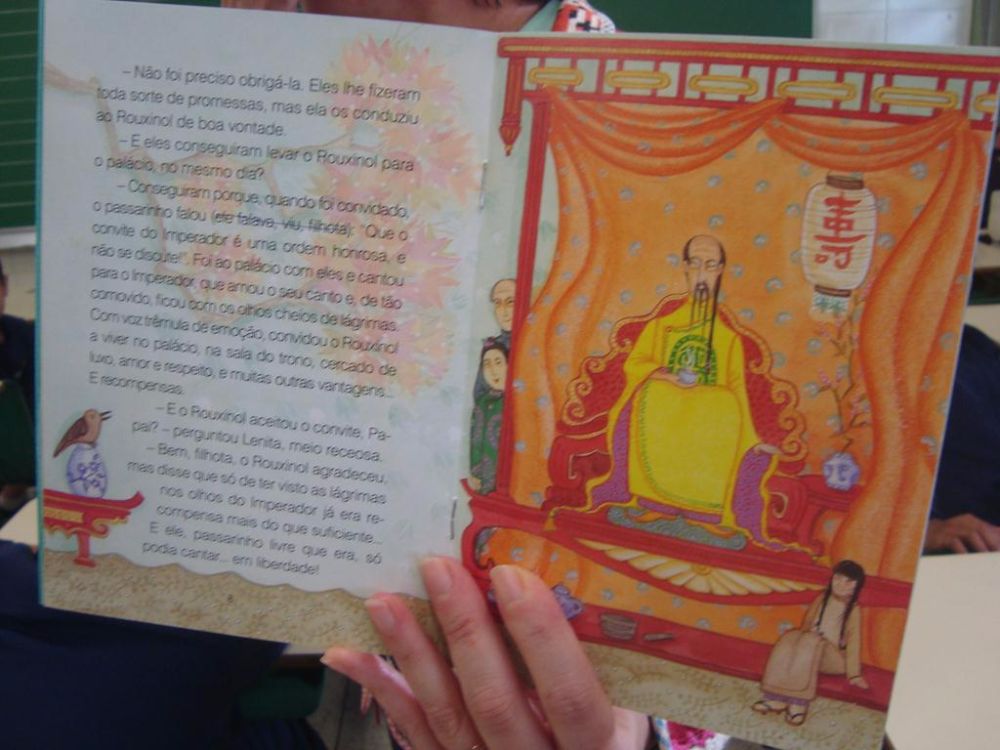 – Não foi preciso obrigá-la. Eles lhe fizeram
toda sorte de promessas, mas ela os conduziu
ao Rouxinol de boa vontade.
– E eles conseguiram levar o Rouxinol para
o palácio, no mesmo dia?
– Conseguiram porque, quando foi convidado,
o passarinho falou (ele falava, viu, filhota): "Que o
convite do Imperador é uma ordem honrosa, e
não se discute!". Foi ao palácio com eles e cantou
para o Imperador, que amou o seu canto e, de tão
comovido, ficou com os olhos cheios de lágrimas.
Com voz trêmula de emoção, convidou o Rouxinol
a viver no palácio, na sala do trono, cercado de
luxo, amor e respeito, e muitas outras vantagens...
E recompensas.
– E o Rouxinol aceitou o convite, Pa-
pai? – perguntou Lenita, meio receosa.
– Bem, filhota, o Rouxinol agradeceu,
mas disse que só de ter visto as lágrimas
nos olhos do Imperador já era re-
compensa mais do que suficiente...
E ele, passarinho livre que era, só
podia cantar... em liberdade!